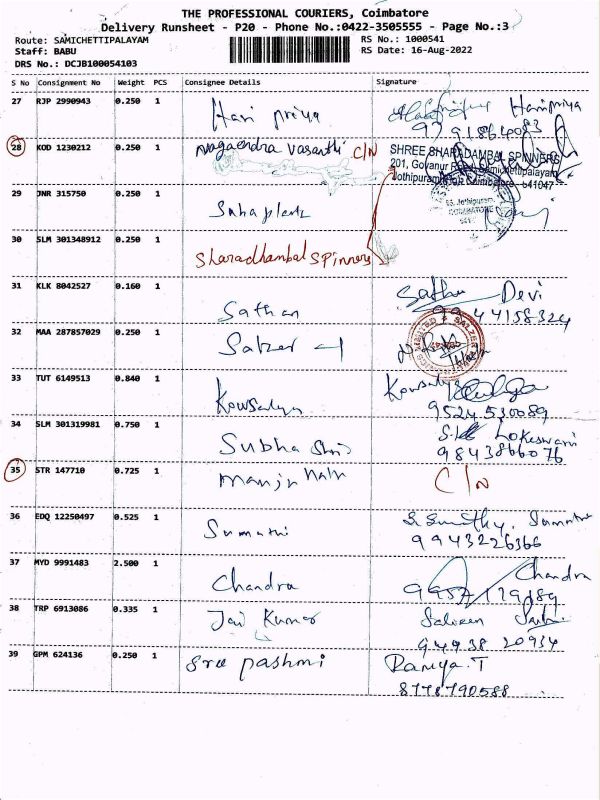 THE PROFESSIONAL COURIERS, Coimbatore
Delivery Runsheet - P20 - Phone No.:0422-3505555 - Page No.:3
Route: SAMICHETTIPALAYAM RS No.: 1000541
Staff: BABU RS Date: 16-Aug-2022
DRS No.: DCJB100054103
S No Consignment No Weight PCS Consignee Details Signature
27 RJP 2990943 0.250 1 Hari priya Haripriya
28 KOD 1230212 0.250 1 Nagaendra vasanthi C/N
SHREE SHARADAMBAL SPINNERS
201, Govanur Road, Samichettipalayam
Jothipuram Coimbatore - 641047
29 JNR 315750 0.250 1
30 SLM 301348912 0.250 1 Sharadhambal Spinners
31 KLK 8042527 0.160 1 Sathan Sathu Devi
99 44158324
32 MAA 287857029 0.250 1 Salzer
33 TUT 6149513 0.840 1 Kowsalya Kowsalya
9524530089
34 SLM 301319981 0.750 1 Subha Shri Lokeswari
9843866076
35 STR 147710 0.725 1 Manju Nath C/N
36 EDQ 12250497 0.525 1 Sumathi
9943226366
37 MYD 9991483 2.500 1 Chandra Chandra
38 TRP 6913086 0.335 1 Jai Kumar
94438 20934
39 GPM 624136 0.250 1 Sree pashmi Ramya.T
8778790588